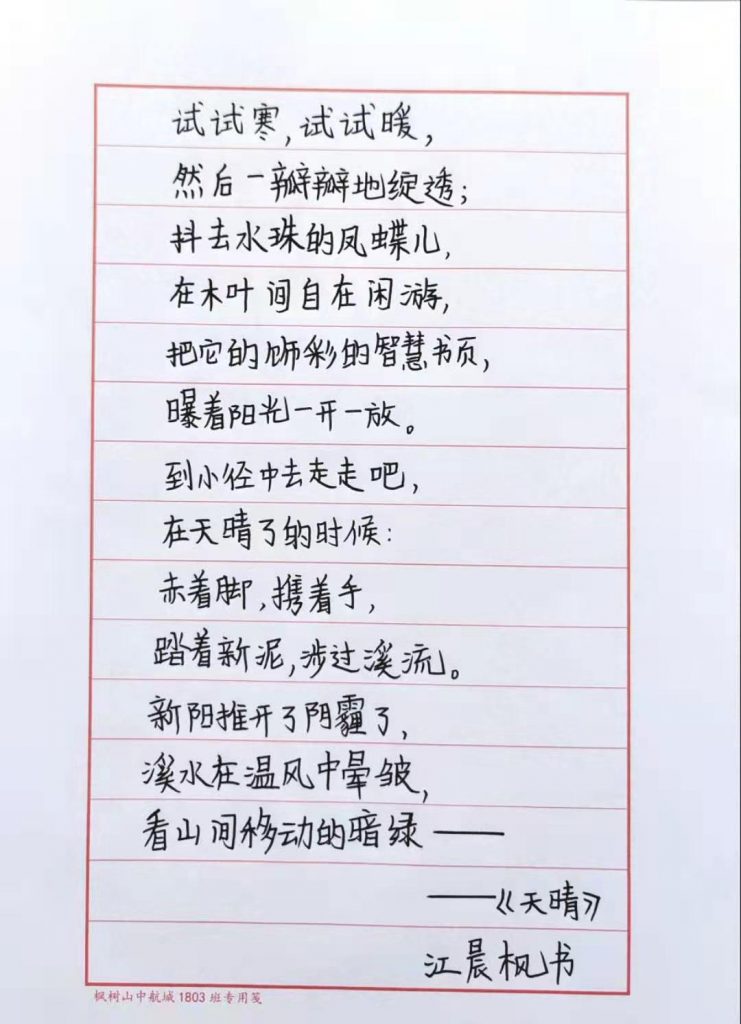 试试寒,试试暖,
然后一瓣瓣地绽透;
抖去水珠的凤蝶儿,
在木叶间自在闲游,
把它的饰彩的智慧书页,
曝着阳光一开一放。
到小径中去走走吧,
在天晴了的时候:
赤着脚,携着手,
踏着新泥,涉过溪流。
新阳推开了阴霾了,
溪水在温风中晕皱,
看山间移动的暗绿——
——《天晴》
江晨枫书
枫树山中航城1803班专用笺